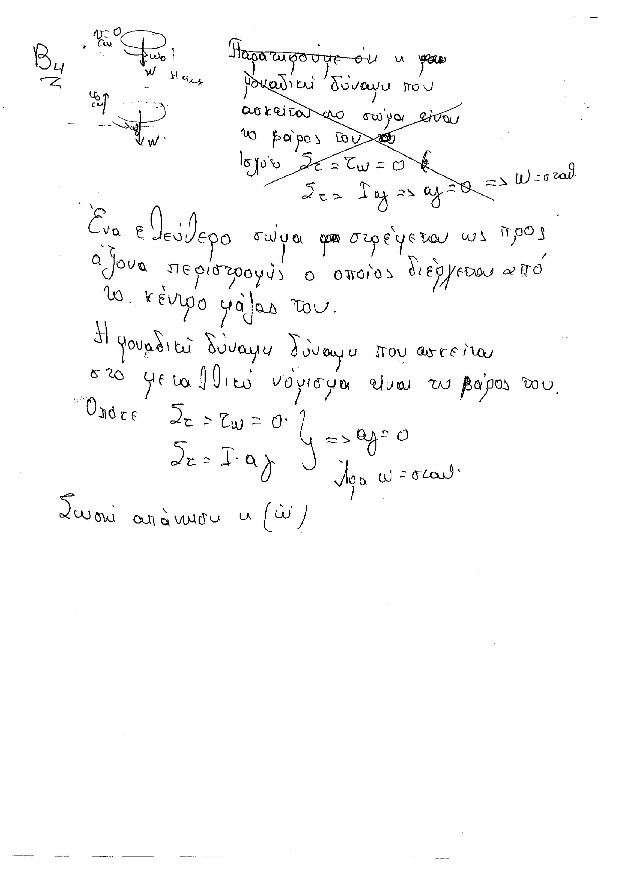 B4
Παρατηρούμε ότι η
μοναδική δύναμη που
ασκείται στο σώμα είναι
το βάρος του
Ισχύει Στ = τw = 0
Στ = Iαγ => αγ = 0 => ω = σταθ
Ένα ελεύθερο σώμα στρέφεται ως προς
άξονα περιστροφής ο οποίος διέρχεται από
το κέντρο μάζας του.
Η μοναδική δύναμη δύναμη που ασκείται
στο μεταλλικό νόμισμα είναι το βάρος του.
Οπότε Στ = τw = 0
Στ = I·αγ } => αγ = 0
Άρα ω = σταθ.
Σωστή απάντηση η (ii)